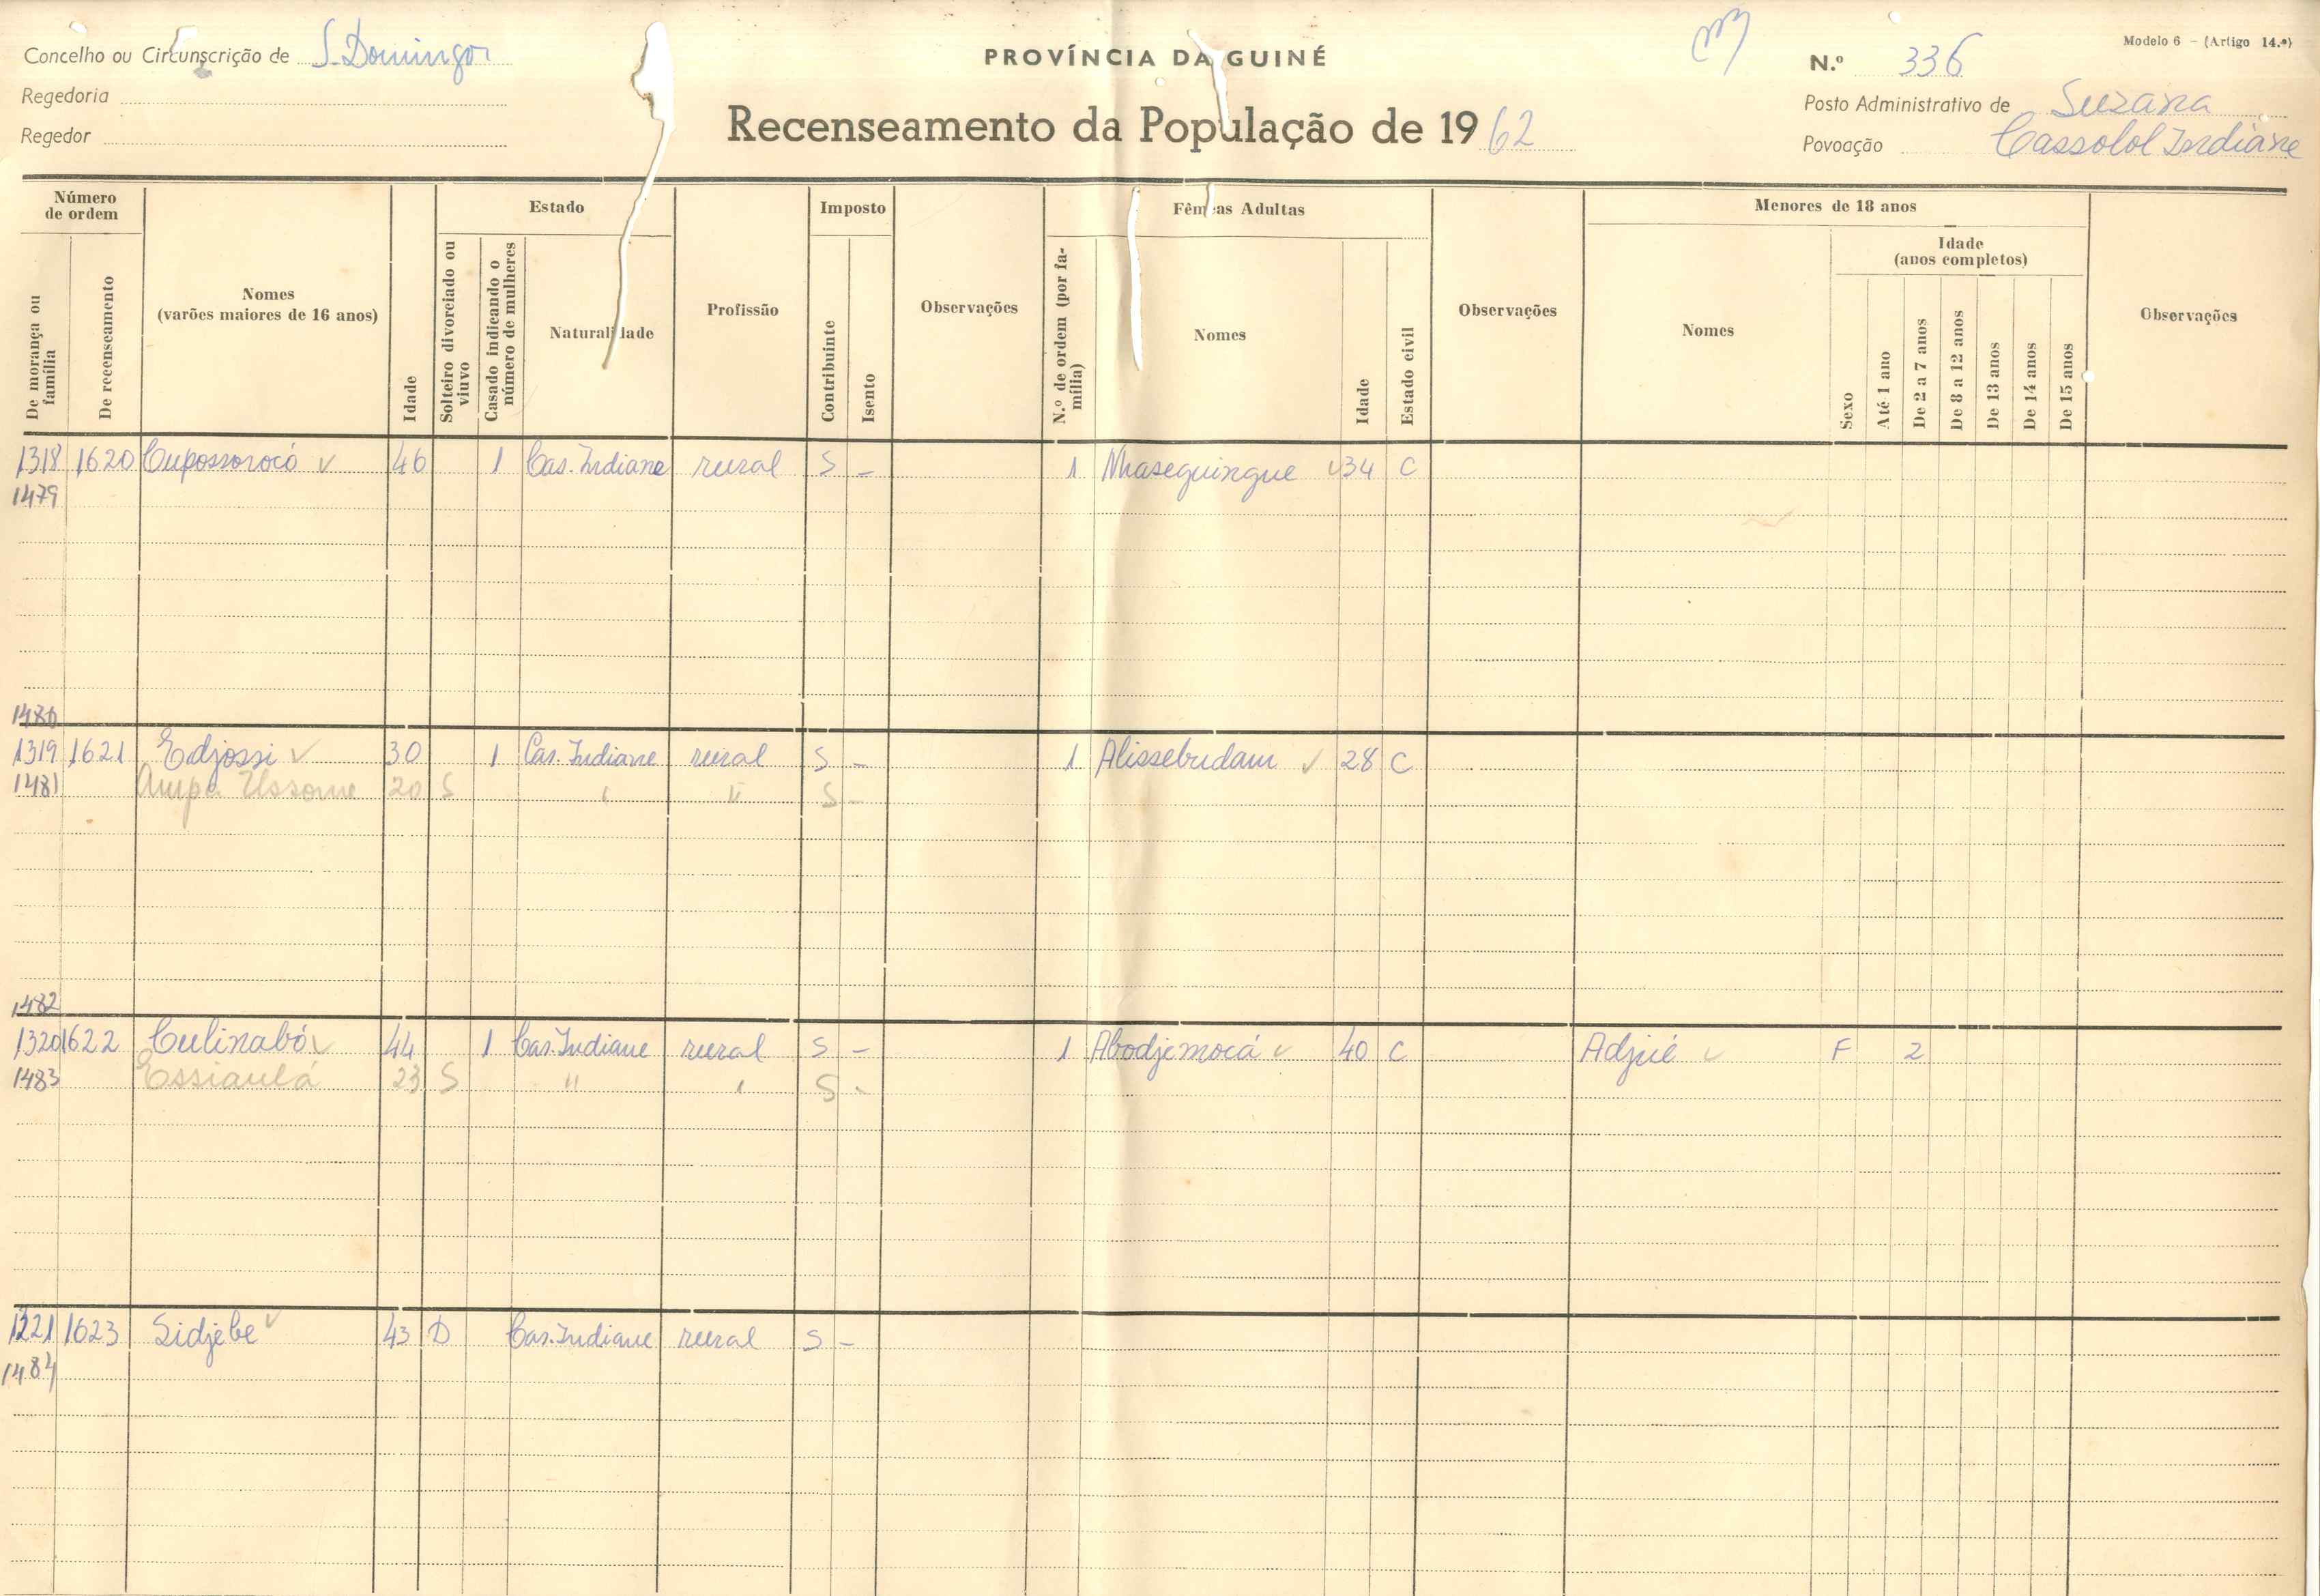 Concelho ou Circunscrição de S. Domingos
Regedoria
Regedor
PROVÍNCIA DA GUINÉ
Recenseamento da População de 1962
Modelo 6 - (Artigo 14.º)
N.º 336
Posto Administrativo de Suzana
Povoação Cassolol Indiane
Número de ordem
De morança ou família
De recenseamento
Nomes (varões maiores de 16 anos)
Idade
Estado
Solteiro divorciado ou viuvo
Casado indicando o número de mulheres
Naturalidade
Profissão
Imposto
Contribuinte
Isento
Observações
Fêmeas Adultas
N.º de ordem (por família)
Nomes
Idade
Estado civil
Observações
Menores de 18 anos
Nomes
Sexo
Idade (anos completos)
Até 1 ano
De 2 a 7 anos
De 8 a 12 anos
De 13 anos
De 14 anos
De 15 anos
Observações
1318 1620 Cupossorocó 46 1 Cas. Indiane rural S - 1 Nhaseguingue 34 C
1479
1480
1319 1621 Edjossi 30 1 Cas. Indiane rural S - 1 Alissebudam 28 C
1481 Ampa Ussome 20 S " " S -
1482
1320 1622 Culinabó 44 1 Cas. Indiane rural S - 1 Abodjemocá 40 C Adjué F 2
1483 Essiaulá 23 S " " S -
1221 1623 Sidjebe 43 D Cas. Indiane rural S -
1484